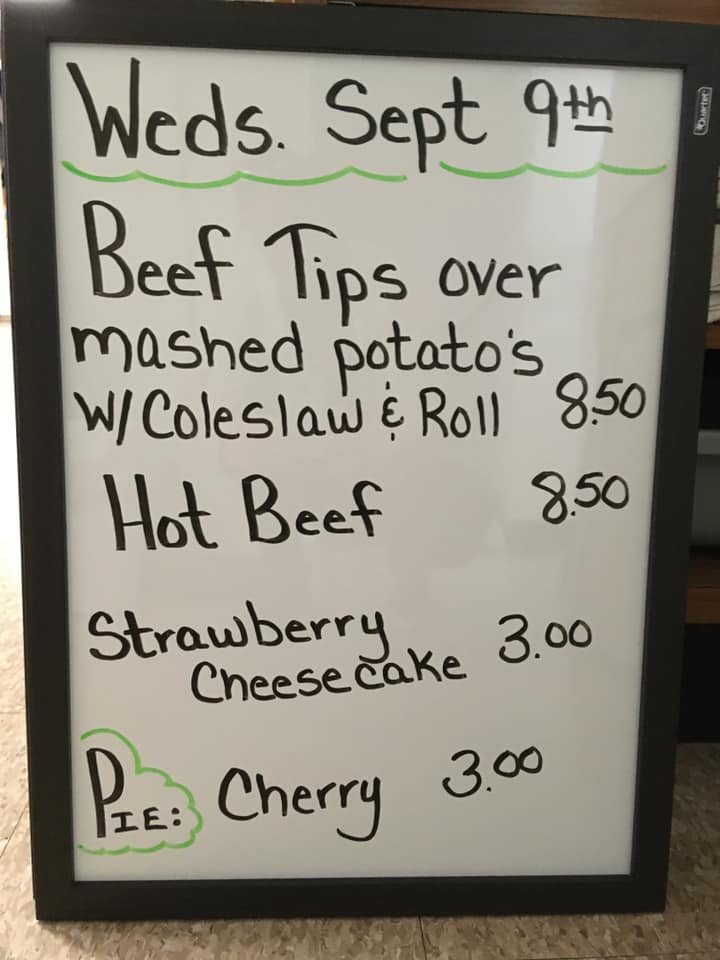 Weds. Sept 9th
Beef Tips over
mashed potato's
W/ Coleslaw & Roll 8.50
Hot Beef 8.50
Strawberry
Cheesecake 3.00
PIE: Cherry 3.00
Quartet